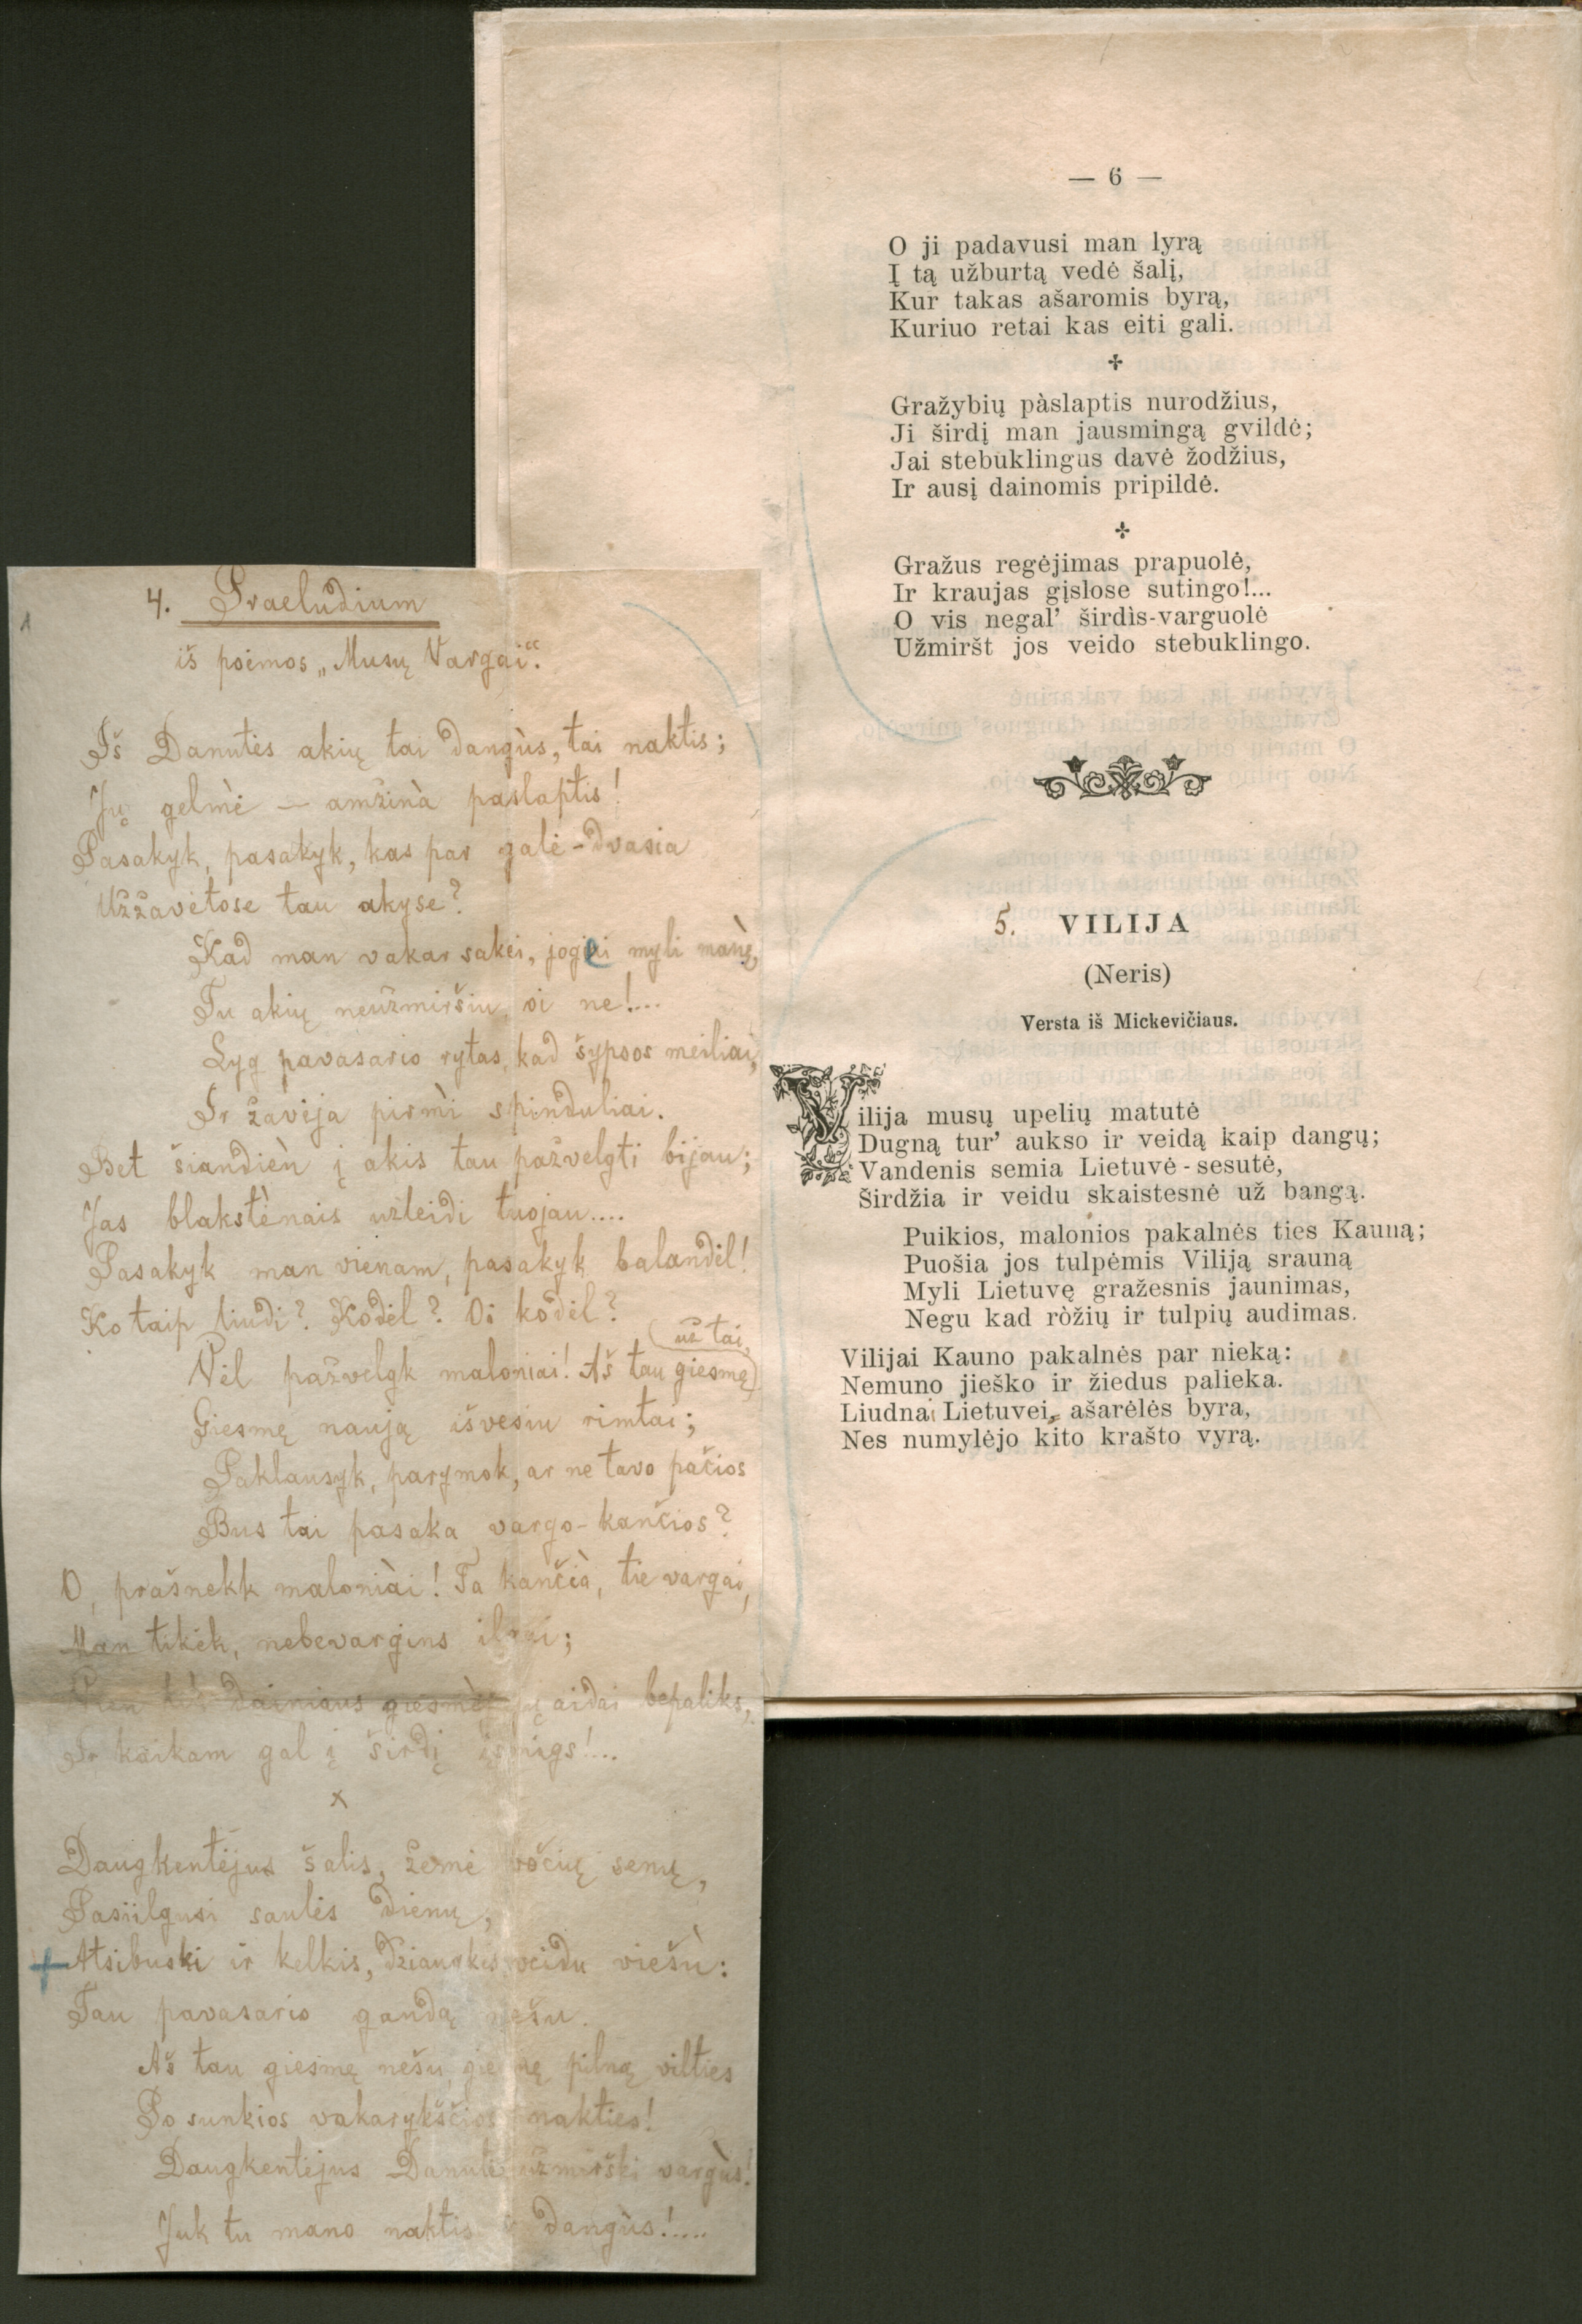 — 6 —
O ji padavusi man lyrą
Į tą užburtą vedė šalį,
Kur takas ašaromis byrą,
Kuriuo retai kas eiti gali.
Gražybių pàslaptis nurodžius,
Ji širdį man jausmingą gvildė;
Jai stebuklingus davė žodžius,
Ir ausį dainomis pripildė.
Gražus regėjimas prapuolė,
Ir kraujas gįslose sutingo!...
O vis negal’ širdìs-varguolė
Užmiršt jos veido stebuklingo.
4. Praeludium
iš poėmos „Musų Vargai“.
Iš Danutės akių tai dangùs, tai naktis;
Jų gelmė — amžinà paslaptis!
Pasakyk, pasakyk, kas par galė-dvasia
Užžavėtose tau akyse?
Kad man vakar sakei, jogei myli manę,
Tu akių neužmiršiu, oi ne!...
Lyg pavasario rytas, kad šypsos meiliai,
Ir žavėja pirmì spinduliai.
Bet šiandièn į akis tau pažvelgti bijau;
Jas blakstėnais užleidi tuojau....
Pasakyk man vienam, pasakyk balandėl!
Ko taip liudi? Kodėl? Oi kodėl?
Vėl pažvelgk maloniai! Aš tau giesmę už tai,
Giesmę naują išvesiu rimtai;
Paklausyk, parymok, ar ne tavo pačios
Bus tai pasaka vargo-kančios?
O, prašnekk maloniài! Ta kančià, tie vargai,
Man tikėk, nebevargins ilgai;
dainiaus giesmėj jų aidai bepaliks,
Ir kaikam gal į širdį įsmigs!...
x
Daugkentėjus šalis, žemė bočių senų,
Pasiilgusi saulės dienų,
Atsibuski ir kelkis, džiaugkis veidu viešù:
Tau pavasario gandą nešu.
Aš tau giesmę nešu, giesmę pilną vilties
Po sunkios vakarykščios nakties!
Daugkentėjus Danutė užmirški vargùs!
Juk tu mano naktis ir dangùs!....
5. VILIJA
(Neris)
Versta iš Mickevičiaus.
Vilija musų upelių matutė
Dugną tur’ aukso ir veidą kaip dangų;
Vandenis semia Lietuvė-sesutė,
Širdžia ir veidu skaistesnė už bangą.
Puikios, malonios pakalnės ties Kauną;
Puošia jos tulpėmis Viliją srauną
Myli Lietuvę gražesnis jaunimas,
Negu kad ròžių ir tulpių audimas.
Vilijai Kauno pakalnės par nieką:
Nemuno jieško ir žiedus palieka.
Liudna Lietuvei, ašarėlės byra,
Nes numylėjo kito krašto vyrą.